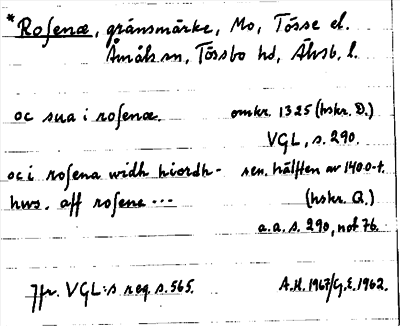 *Rosenæ, gränsmärke, Mo, Tösse el.
Åmåls sn, Tössbo hd, Älvsb. l.
oc sua i rosenæ. omkr. 1325 (hskr. D.)
VGL, s. 290.
oc i rosena widh hiordh- sen. hälften av 1400-t.
hws. aff rosene --- (hskr. Q.)
a.a. s. 290, not 76.
Jfr. VGL:s reg. s. 565. A.H. 1967/G.E. 1962.